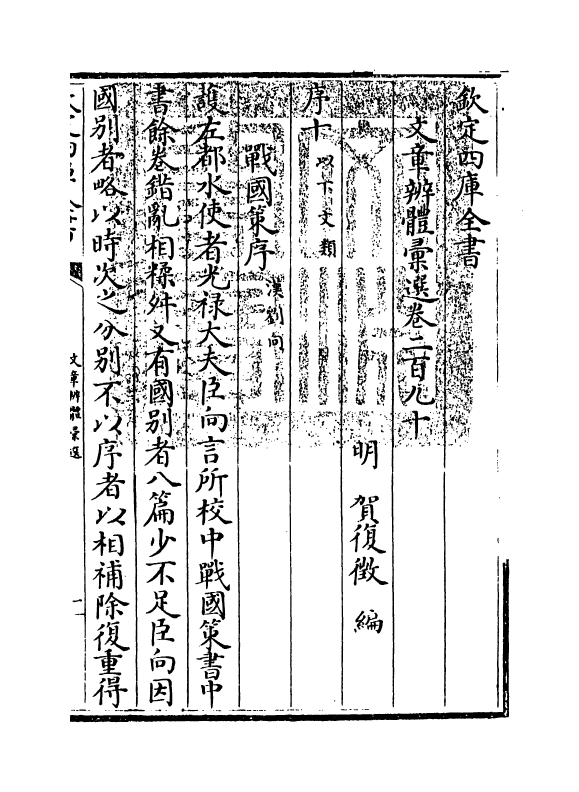 欽定四庫全書
文章辨體彙選卷二百九十
明 賀復徵 編
序十以下文類
戰國策序漢劉向
護左都水使者光禄大夫臣向言所校中戰國策書中
書餘卷錯亂相糅舛又有國別者八篇少不足臣向因
國別者略以時次之分別不以序者以相補除復重得
文章辨體彙選
一